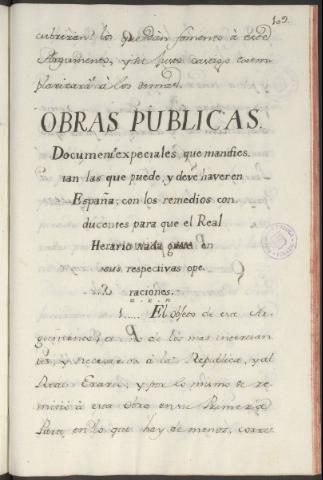 109.
cubriran los que dan fomento à este
Argumento, y su justo castigo exem
plarizará à los demas.
OBRAS PUBLICAS.
Document.s expeciales, que manifies.
tan las que puede, y deve haver en
España; con los remedios con
ducentes para que el Real
Herario nada gaste en
sus respectivas ope
raciones.
1..... El objeto de este Ar
gumento, es uno de los mas interesan
tes, y necesarios à la Republica, y al
Real Erario, y por lo mismo se re
mitió à esta Obra en su Primera
Parte en lo que hay de menos, corres